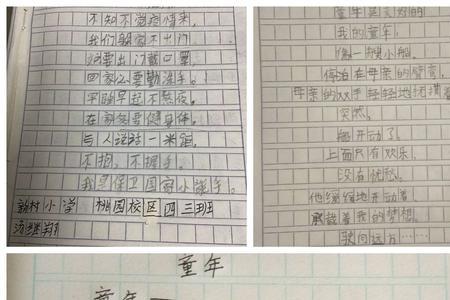 不知不觉疫情来，
我们躲家不出门
如要出门戴口罩
回家以要勤洗手。
早睡早起不熬夜。
在家多骨健身体。
与人谈话一米距，
不抱，不握手，
我是保卫国家小能手。
新村小学 桃园校区四三班
童年是美好的
我的童年，
像一艘小船，
停泊在母亲的臂弯，
母亲的双手轻轻地抚摸着
突然，
船开动了！
上面只有欢乐，
没有忧愁。
他缓缓地开动着，
承载着我的梦想，
驶向远方……
童年
童年